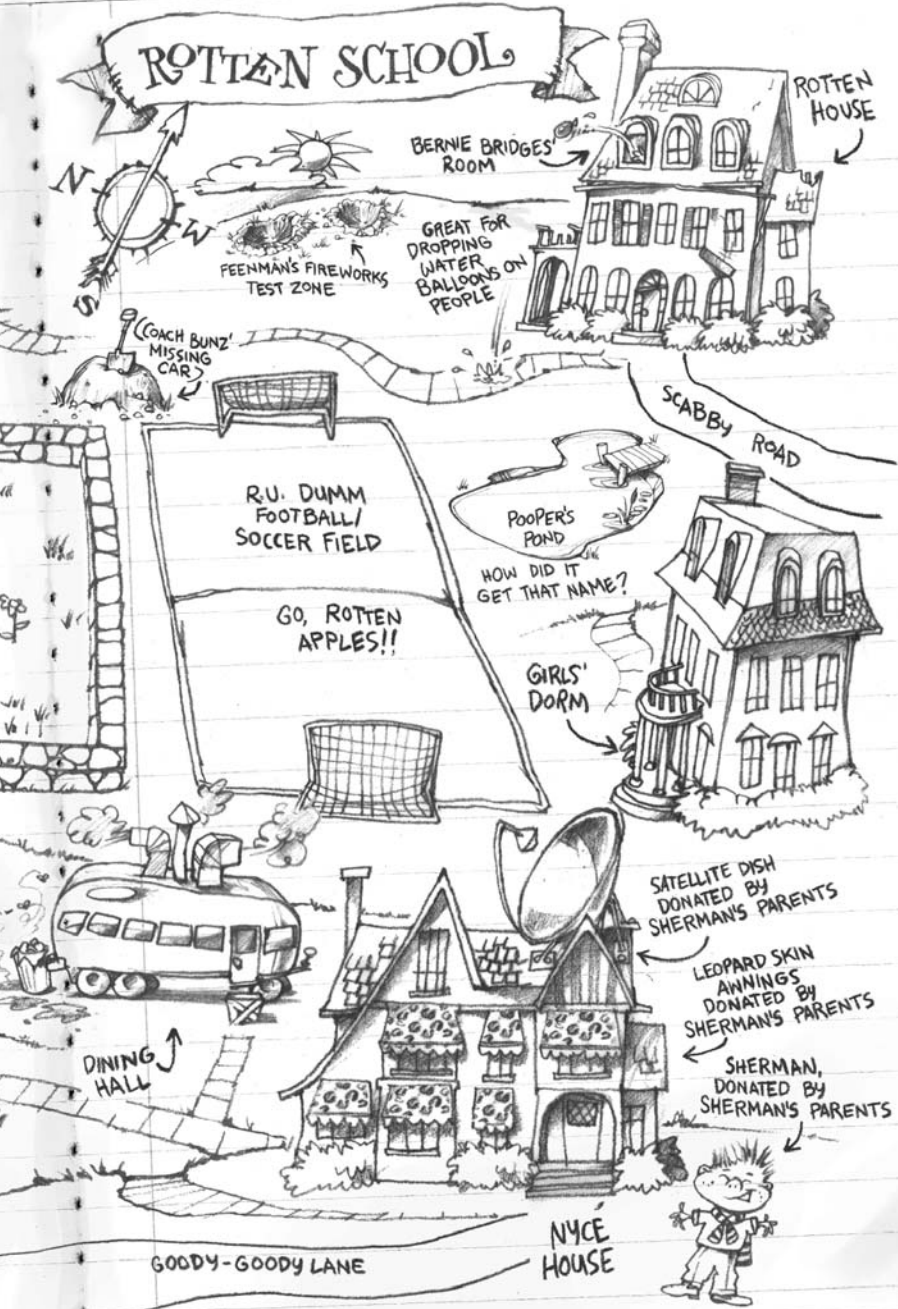 ROTTEN SCHOOL
N
W
S
BERNIE BRIDGES'
ROOM
ROTTEN
HOUSE
FEENMAN'S FIREWORKS
TEST ZONE
GREAT FOR
DROPPING
WATER
BALLOONS ON
PEOPLE
(COACH BUNZ'
MISSING
CAR)
SCABBY ROAD
R.U. DUMM
FOOTBALL/
SOCCER FIELD
GO, ROTTEN
APPLES!!
POOPER'S
POND
HOW DID IT
GET THAT NAME?
GIRLS'
DORM
SATELLITE DISH
DONATED BY
SHERMAN'S PARENTS
LEOPARD SKIN
AWNINGS
DONATED BY
SHERMAN'S PARENTS
SHERMAN,
DONATED BY
SHERMAN'S PARENTS
DINING
HALL
NYCE
HOUSE
GOODY-GOODY LANE